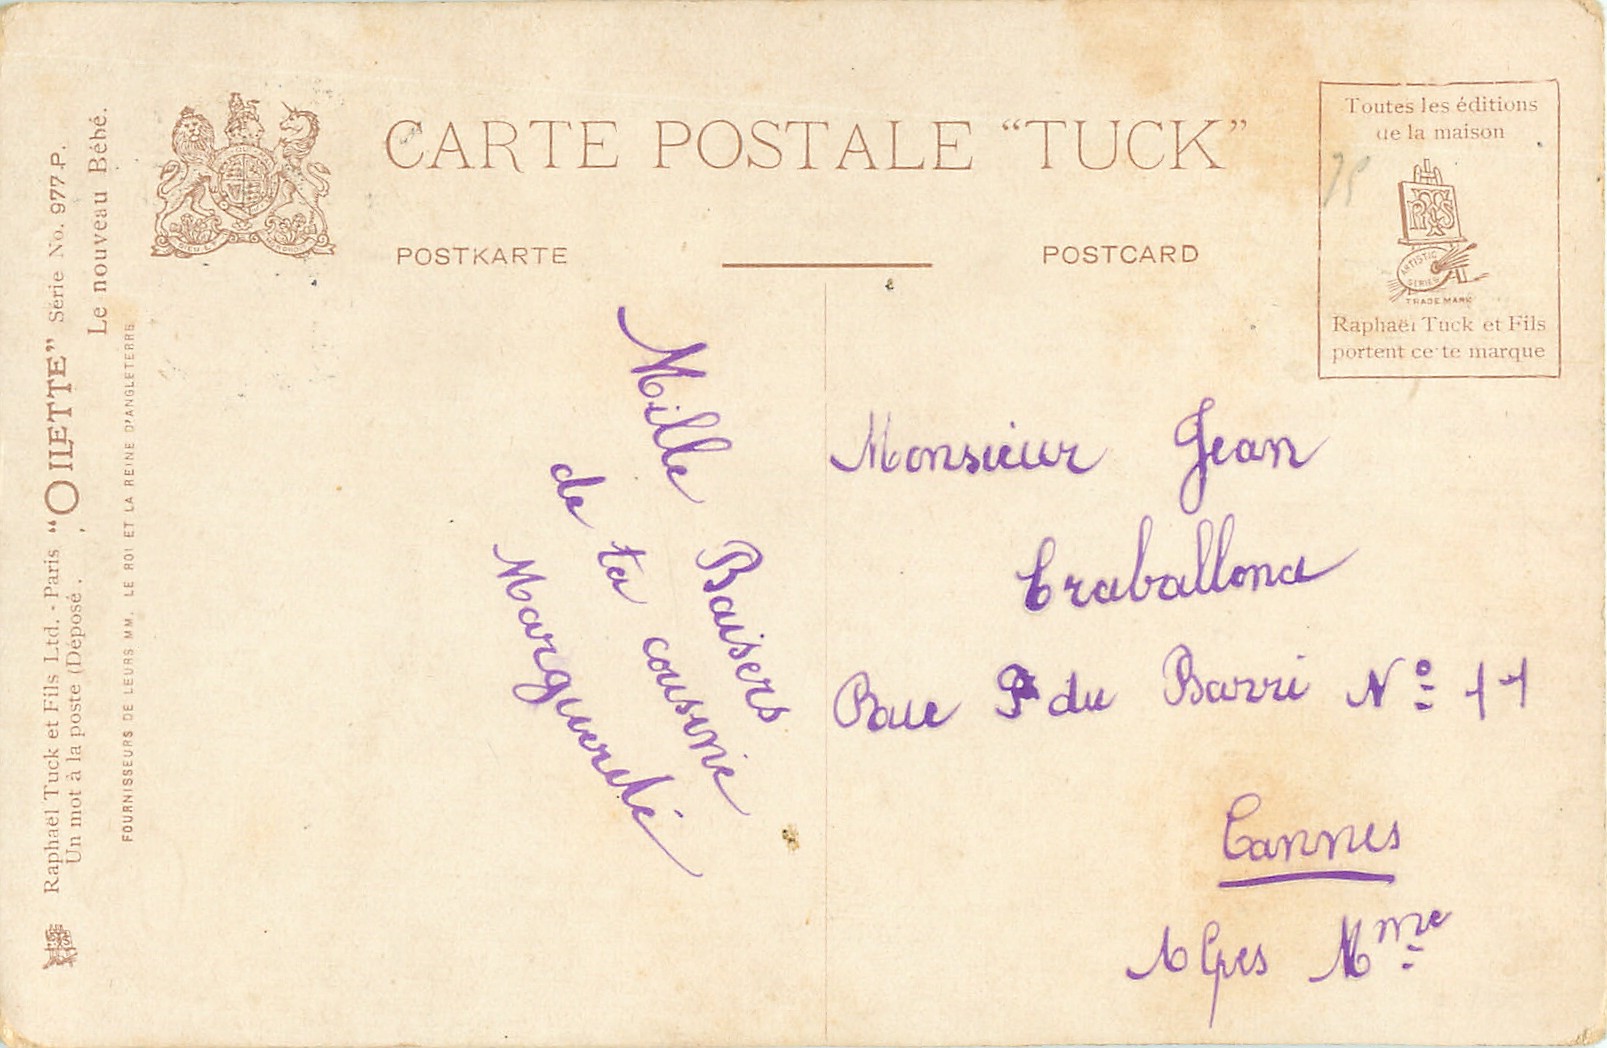 CARTE POSTALE “TUCK”
POSTKARTE
POSTCARD
Toutes les éditions
de la maison
ARTISTIC
SERIES
TRADE MARK
Raphaël Tuck et Fils
portent cette marque
75
Raphaël Tuck et Fils Ltd. - Paris “OILETTE” Série No. 977.P.
Un mot à la poste (Déposé).
Le nouveau Bébé.
FOURNISSEURS DE LEURS MM. LE ROI ET LA REINE D'ANGLETERRE
Mille Baisers
de ta cousine
Marguerite
Monsieur Jean
Craballona
Rue du Barri No 11
Cannes
Alpes Mme